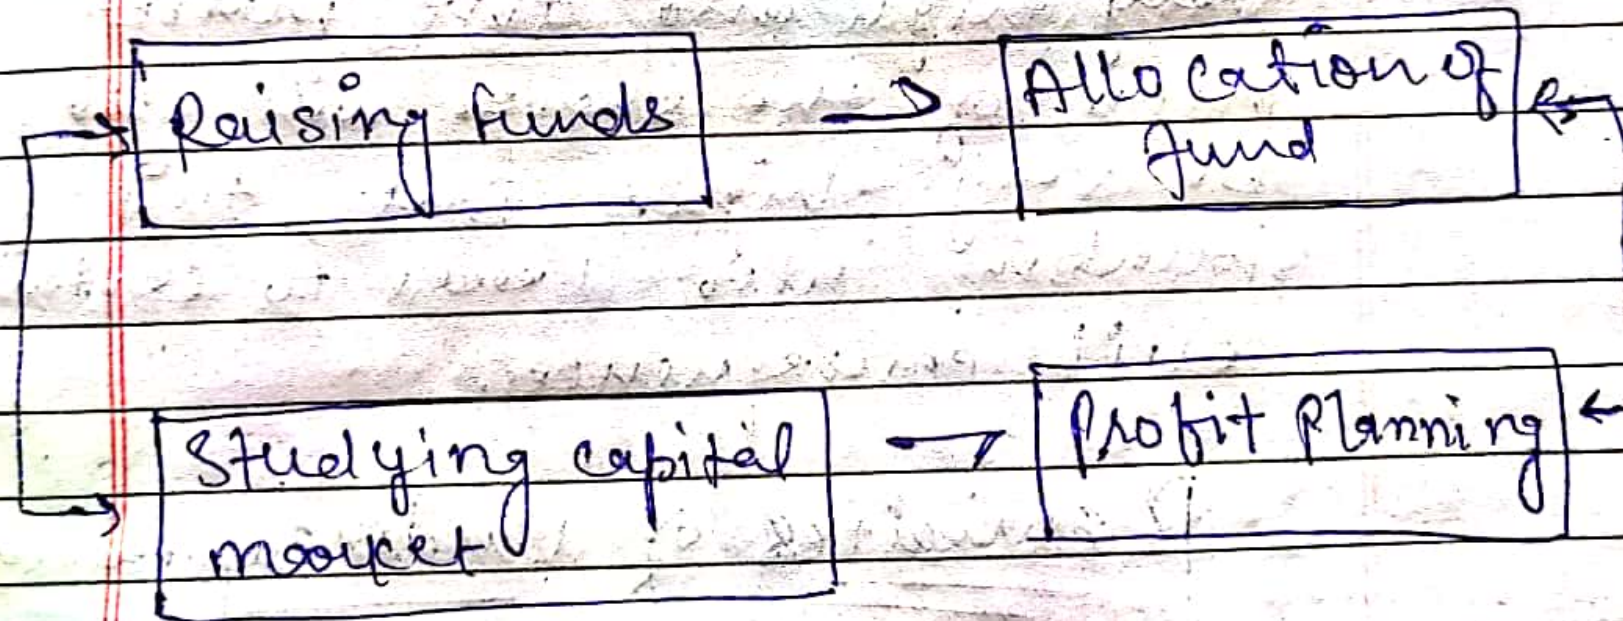 Raising funds
Allocation of
fund
Studying capital
market
Profit Planning